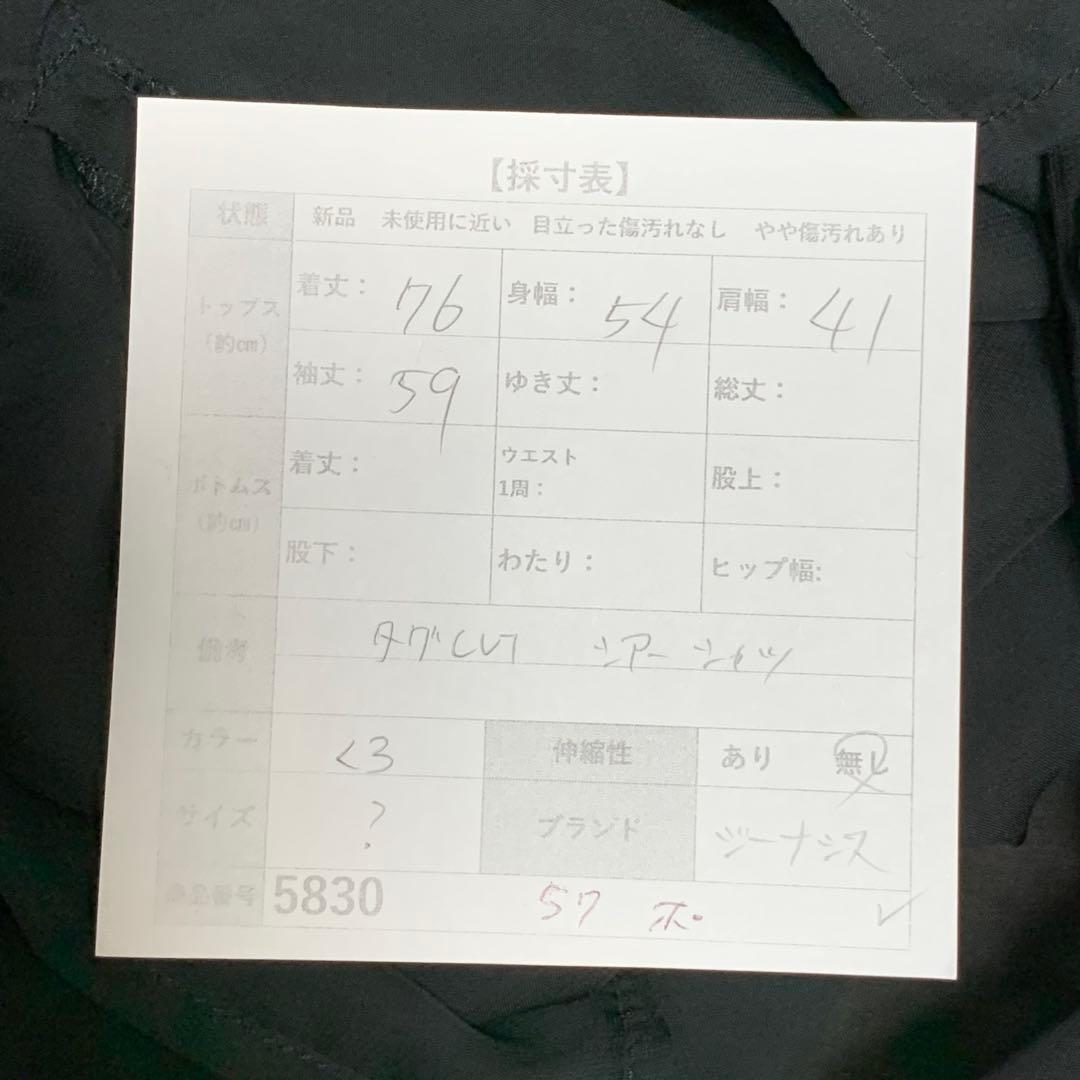 【採寸表】
状態 新品 未使用に近い 目立った傷汚れなし やや傷汚れあり
トップス (約cm)
着丈： 76 身幅： 54 肩幅： 41
袖丈： 59 ゆき丈： 総丈：
ボトムス (約cm)
着丈： ウエスト 1周： 股上：
股下： わたり： ヒップ幅:
備考 タグCLR シアーシャツ
カラー くろ 伸縮性 あり 無し
サイズ ? ブランド ジーナシス
商品番号 5830 57 ホ